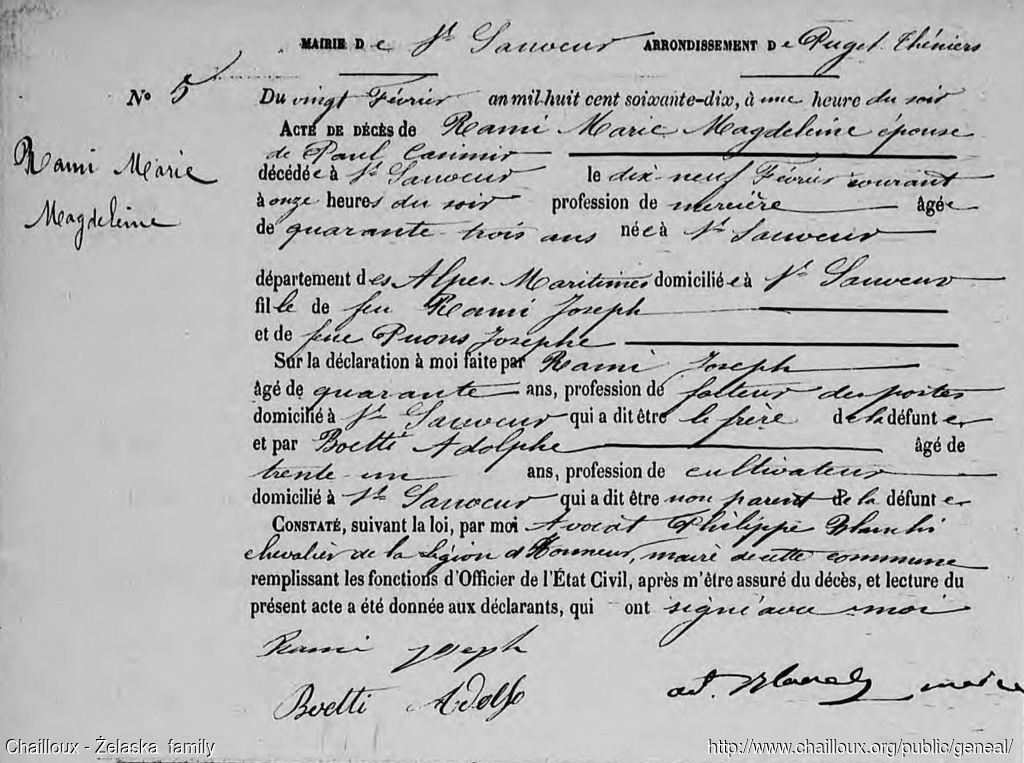 MAIRIE De St Sauveur ARRONDISSEMENT De Puget-Théniers
No 5
Du vingt Février an mil-huit cent soixante-dix, à une heure du soir
ACTE DE DÉCÈS de Rami Marie Magdeleine épouse
de Paul Casimir
Rami Marie
Magdeleine
décédée à St Sauveur le dix-neuf Février courant
à onze heures du soir profession de mercière âgée
de quarante-trois ans née à St Sauveur
département des Alpes-Maritimes domiciliée à St Sauveur
fille de feu Rami Joseph
et de feue Puons Josèphe
Sur la déclaration à moi faite par Rami Joseph
âgé de quarante ans, profession de facteur des postes
domicilié à St Sauveur qui a dit être le frère de la défunte
et par Boetti Adolphe âgé de
trente-un ans, profession de cultivateur
domicilié à St Sauveur qui a dit être non parent de la défunte
CONSTATÉ, suivant la loi, par moi Avocat Philippe Blanchi
chevalier de la Légion d'Honneur, maire de cette commune
remplissant les fonctions d'Officier de l'État Civil, après m'être assuré du décès, et lecture du
présent acte a été donnée aux déclarants, qui ont signé avec moi
Rami Joseph
Boetti Adolfo
maire
Chailloux - Żelaska family
http://www.chailloux.org/public/geneal/